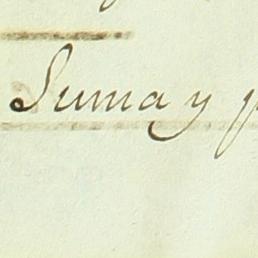 Suma y